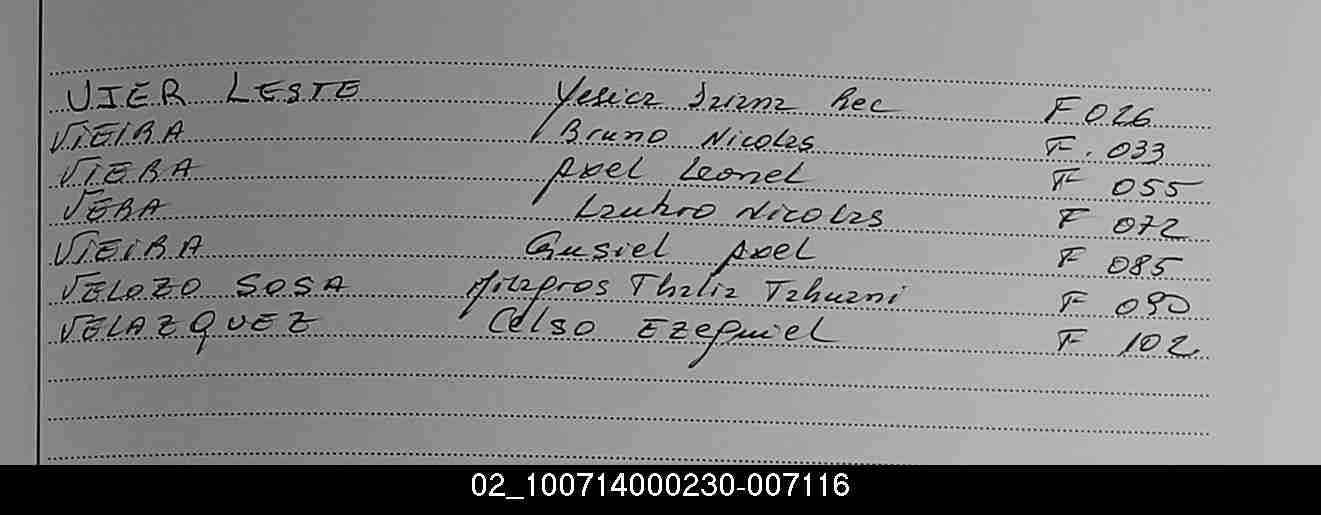 VIER LESTE Yesica Iriana Rec F 026
VIEIRA Bruno Nicolas F. 033
VIERA Axel Leonel F 055
VERA Lautaro Nicolas F 072
VIEIRA Gusiel Axel F 085
VELOZO SOSA Milagros Thalia Tahuani F 090
VELAZQUEZ Celso Ezequiel F 102
02_100714000230-007116